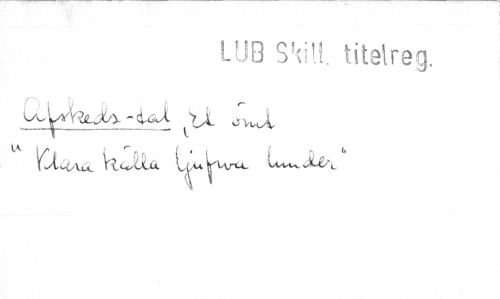 LUB Skill. titelreg.
Afskeds-tal, Et ömt
"Klara källa ljufwa lunder"